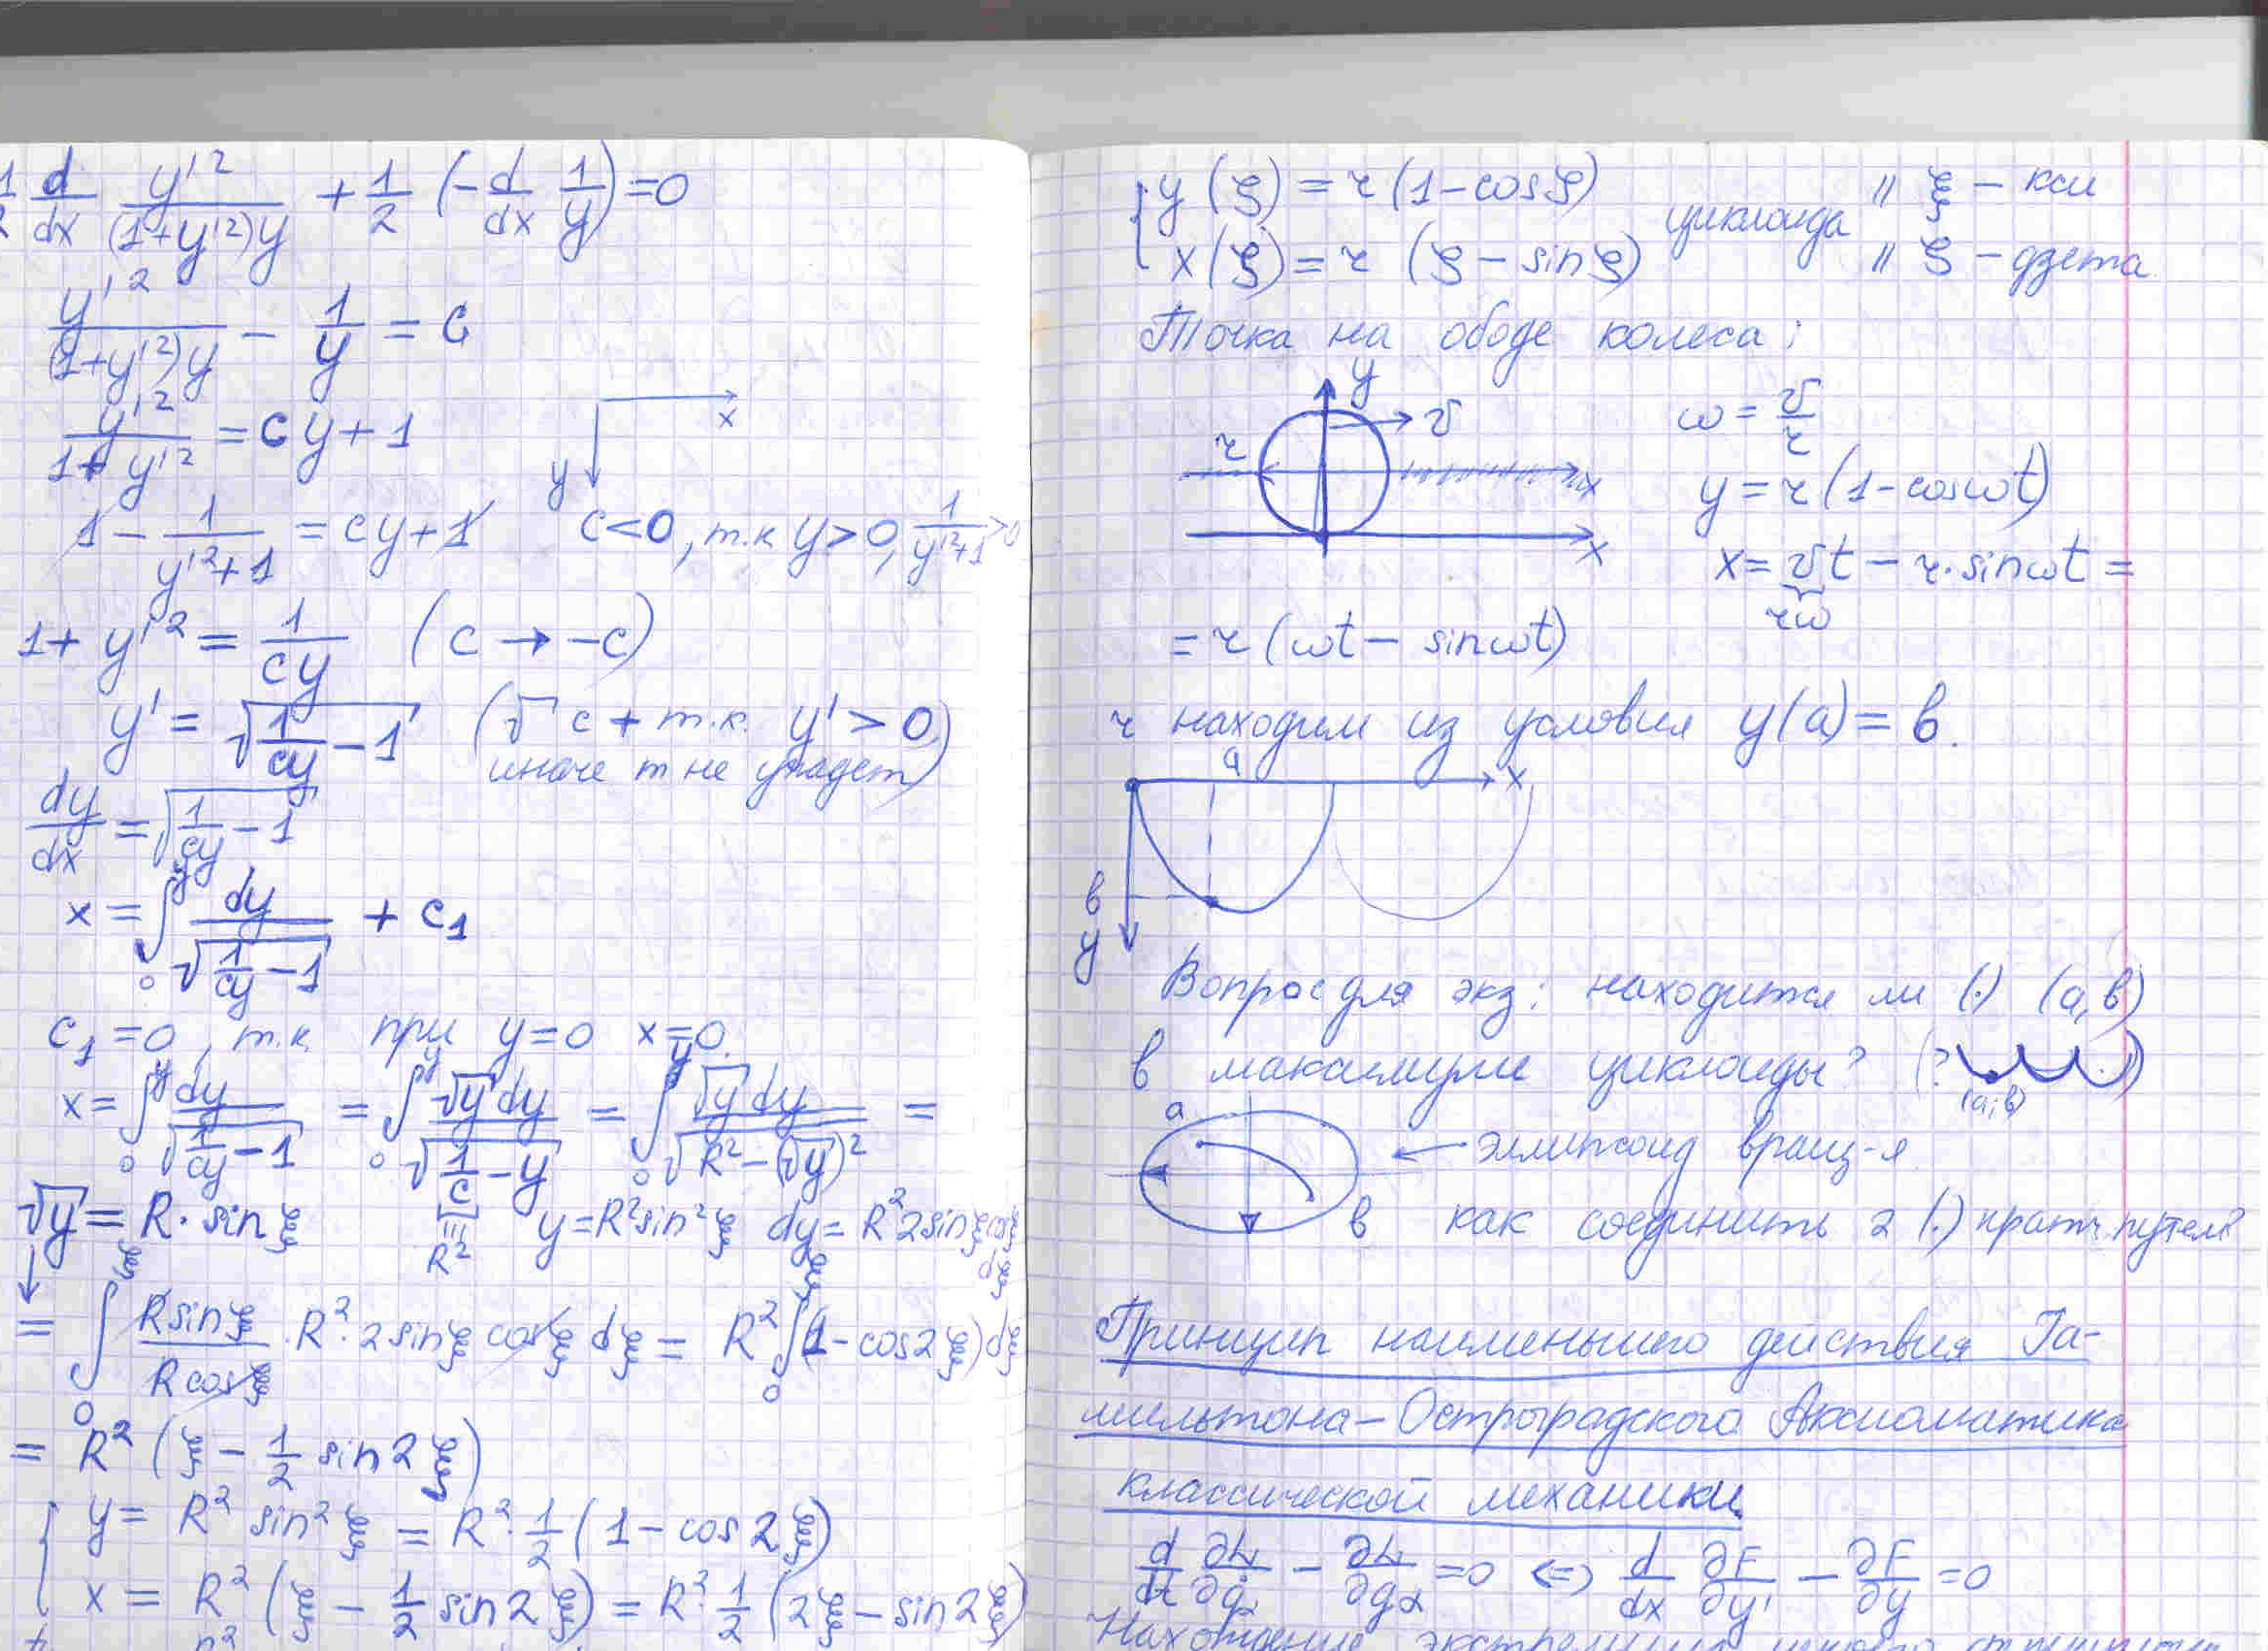 1/2 d/dx y'²/((1+y'²)y) + 1/2 (-d/dx 1/y) = 0
y'²/((1+y'²)y) - 1/y = c
y'²/(1+y'²) = cy+1
x
y
1 - 1/(y'²+1) = cy+1 c<0, т.к y>0, 1/(y'²+1)>0
1+y'² = 1/(cy) (c → -c)
y' = √(1/(cy) - 1) (√ с + т.к. y'>0,
иначе m не упадет)
dy/dx = √(1/(cy) - 1)
x = ∫₀^y dy/√(1/(cy) - 1) + c₁
c₁=0, т.к. при y=0 x=0.
x = ∫₀^y dy/√(1/(cy) - 1) = ∫₀^y √y dy/√(1/c - y) = ∫₀^y √y dy/√(R² - (√y)²) =
√y = R·sin ξ = R² y=R²sin²ξ dy=R²2sinξcosξ dξ
= ∫₀^ξ Rsinξ/Rcosξ ·R²·2sinξ cosξ dξ = R² ∫₀^ξ (1-cos2ξ)dξ
= R² (ξ - 1/2 sin2ξ)
{ y = R² sin²ξ = R²·1/2 (1-cos2ξ)
x = R² (ξ - 1/2 sin2ξ) = R²·1/2 (2ξ - sin2ξ)
{ y(ζ) = r(1-cosζ) // ξ - кси
циклоида
x(ζ) = r (ζ - sinζ) // ζ - дзета
Точка на ободе колеса:
y
v
r
x
x
ω = v/r
y = r(1-cosωt)
x = vt - r·sinωt =
rω
= r(ωt - sinωt)
r находим из условия y(a) = в.
a
x
в
y
Вопрос для экз: находится ли (·) (a,в)
в максимуме циклоиды? (?
(a;в)
a
← эллипсоид вращ-я
в как соединить 2 (·) кратч. путем?
Принцип наименьшего действия Га-
мильтона-Остроградского Аксиоматика
классической механики.
d/dt ∂L/∂q̇α - ∂L/∂qα = 0 <=> d/dx ∂F/∂y' - ∂F/∂y = 0
Нахождение